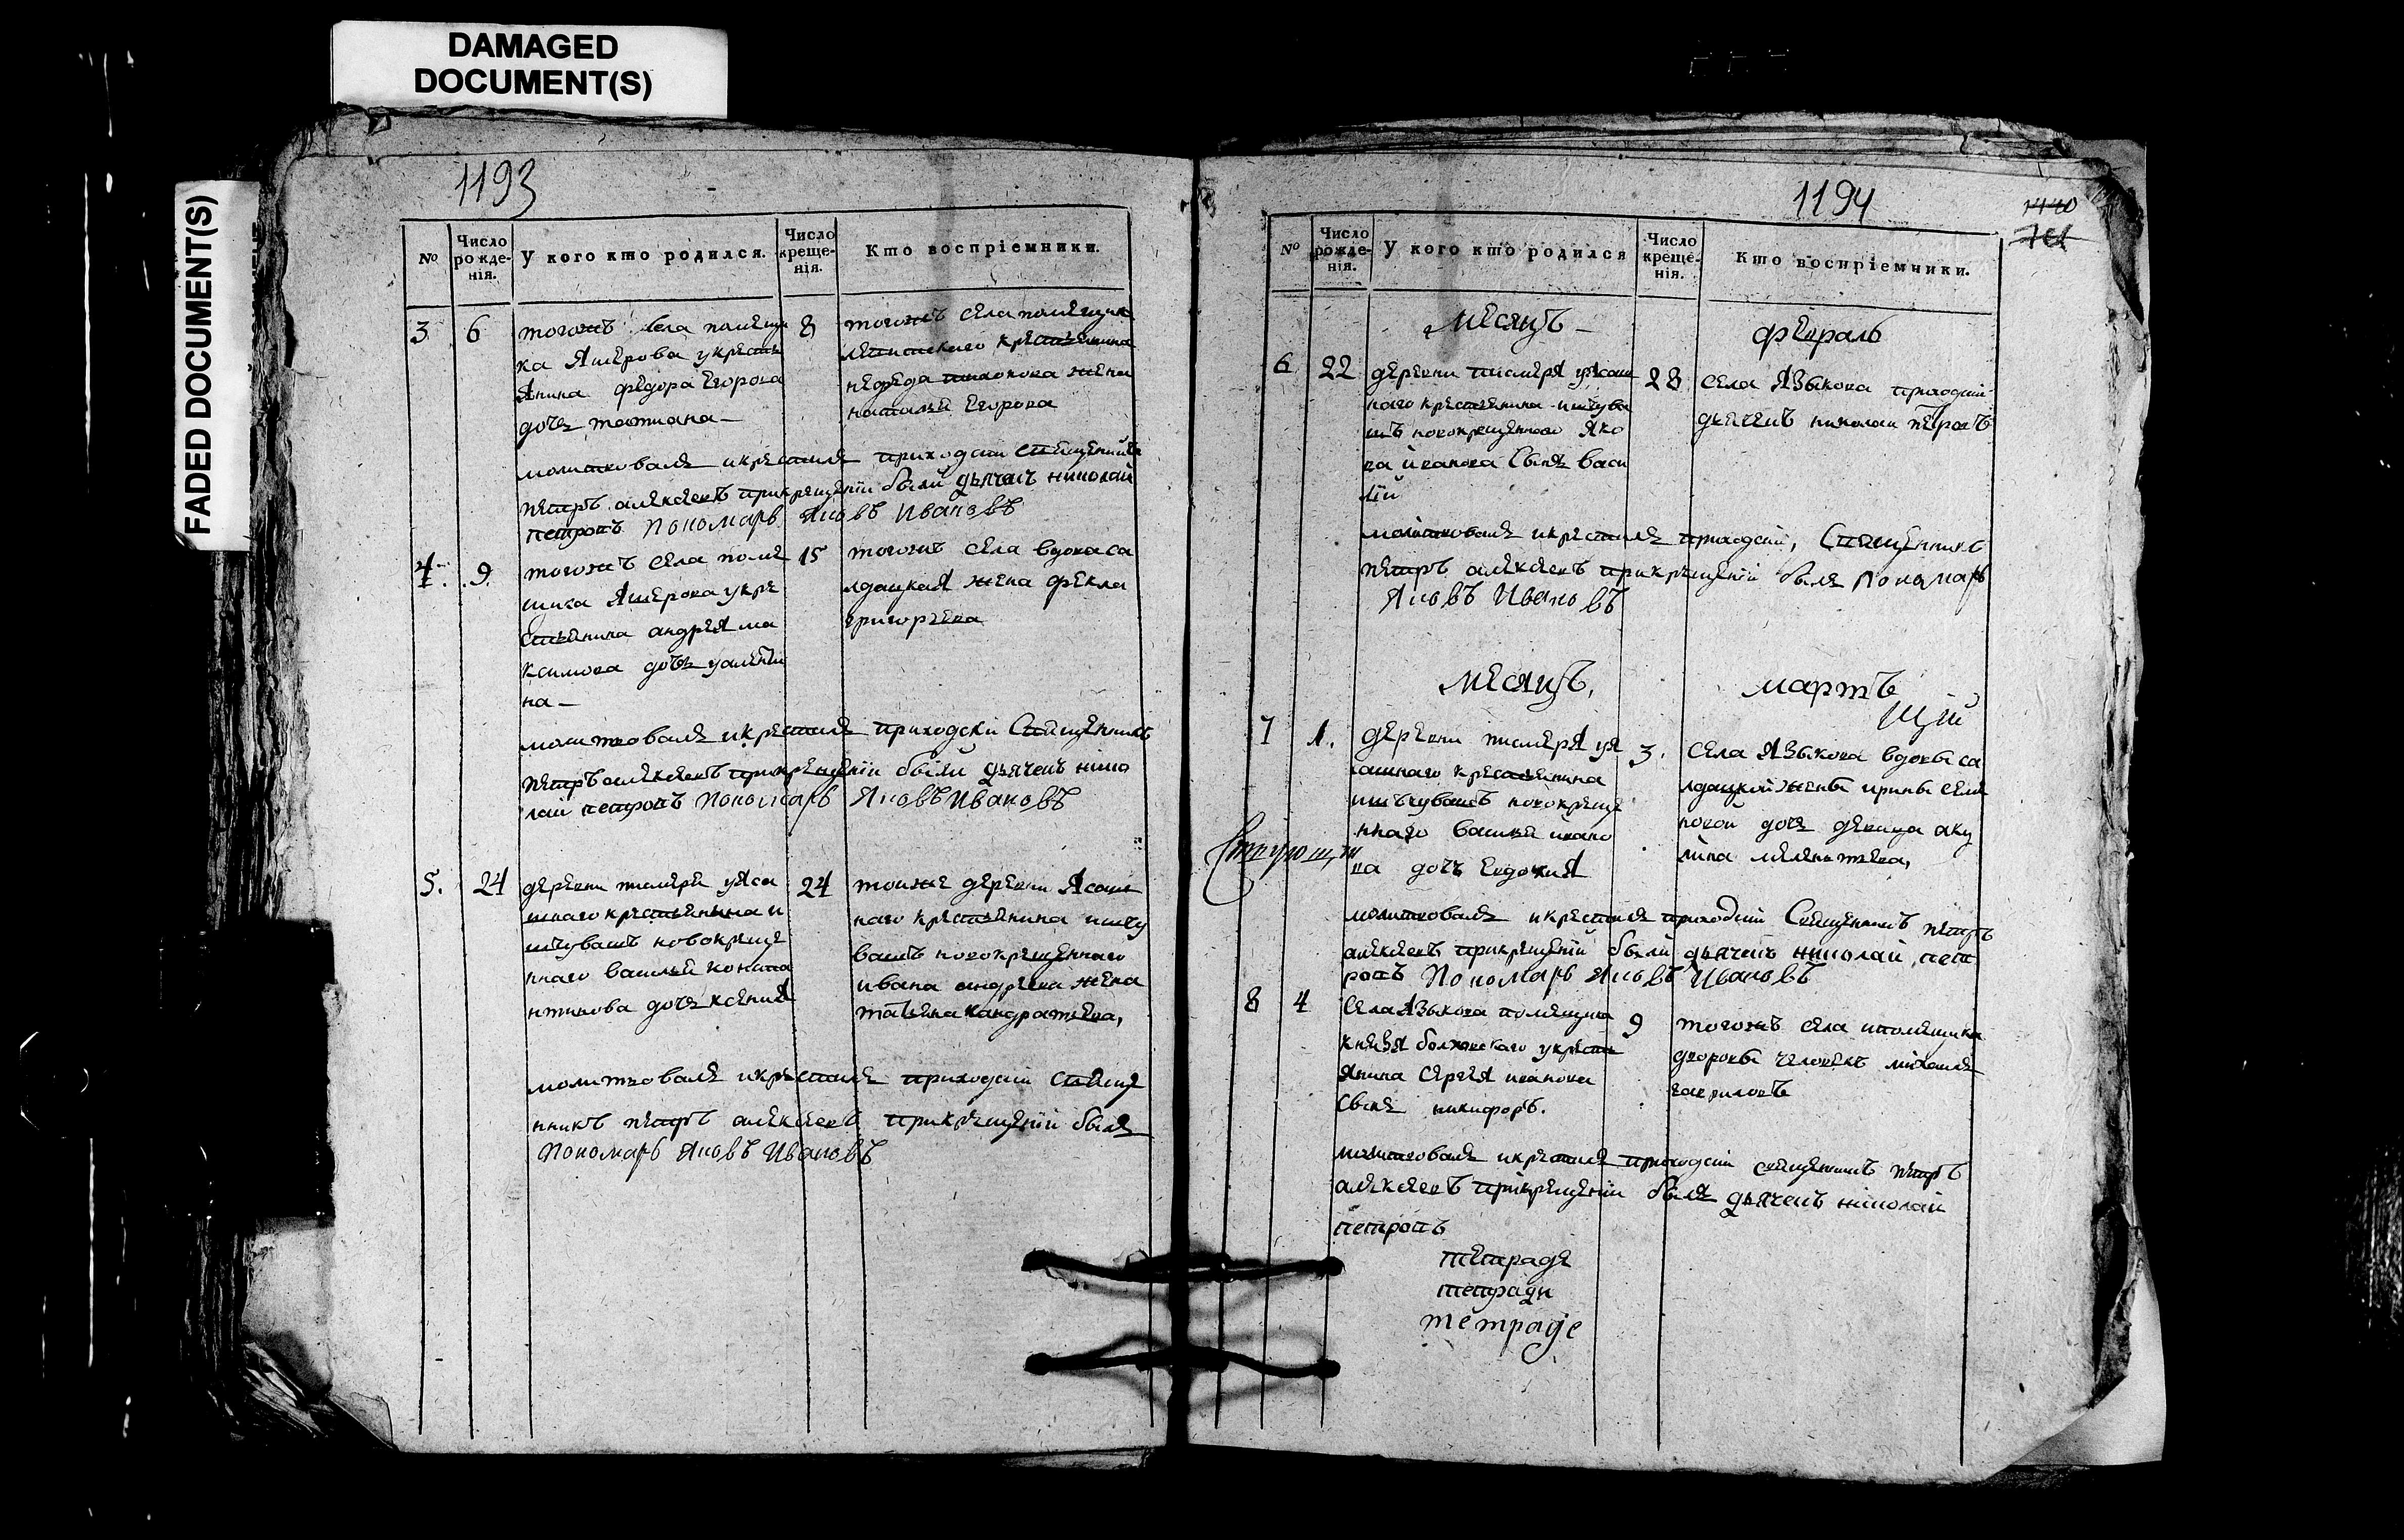 DAMAGED
DOCUMENT(S)
FADED DOCUMENT(S)
1193
№
Число рожде-нія.
У кого кто родился.
Число креще-нія.
Кто воспріемники.
3
6
тогожъ села помещи
ка Яшерова укресть
янина федора Егорова
дочь татиана
8
тогожъ села помещика
крестьянина
нефеда жена
наталья Егорова
молитвовалъ икрестилъ приходский священникъ
петръ алексеевъ прикрещении были дьячекъ николай
петровъ Пономарь Яковъ Ивановъ
4
9
тогожъ села поме
щика Яшерова укре
стьянина андрея ма
ксимова дочь
на
15
тогожъ села вдова са
лдацкая жена фекла
григорьева
молитвовалъ икрестилъ приходски священникъ
петръ алексеевъ прикрещении были дьячекъ нико
лай петровъ Пономарь Яковъ Ивановъ
5.
24
деревни уяса
шнаго крестьянина и
шчувашъ новокреще
ннаго василья
дочь ксения
24
тоиже деревни Ясаш
наго крестьянина ишчу
вашъ новокрещеннаго
ивана андреева жена
татьяна кандратьева,
молитвовалъ икрестилъ приходский свяще
нникъ петръ алексеевъ прикрещении былъ
Пономарь Яковъ Ивановъ
1194
№
Число рожде-нія.
У кого кто родился
Число креще-нія.
Кто воспріемники.
месяцъ
февраль
6
22
деревни уясаш
наго крестьянина ишчува
шъ новокрещеннаго Яко
ва иванова сынъ васи
лій
28
села Языкова приходский
дьячекъ николаи петровъ
молитвовалъ икрестилъ приходский, Священникъ
петръ алексеевъ прикрещении былъ Пономарь
Яковъ Ивановъ
месяцъ,
мартъ
7
1.
деревни уя
сашнаго крестьянина
ишъчувашъ новокреще
ннаго василья ивано
ва дочь Евдокия
3.
села Языкова вдовы са
лдацкой жены ирины семе
новой дочь девица аку
лина
молитвовалъ икрестилъ приходский Священникъ петръ
алексеевъ прикрещении были дьячекъ николай пет
ровъ Пономарь Яковъ Ивановъ
8
4
села Языкова помещика
князя болховскаго укресть
янина Сергея иванова
сынъ никифоръ.
9
тогожъ села ипомещика
дворовы человекъ михаила
гавриловъ
молитвовалъ икрестилъ приходский священникъ петръ
алексеевъ прикрещении былъ дьячекъ николай
петровъ
тетраде
тетради
тетраде